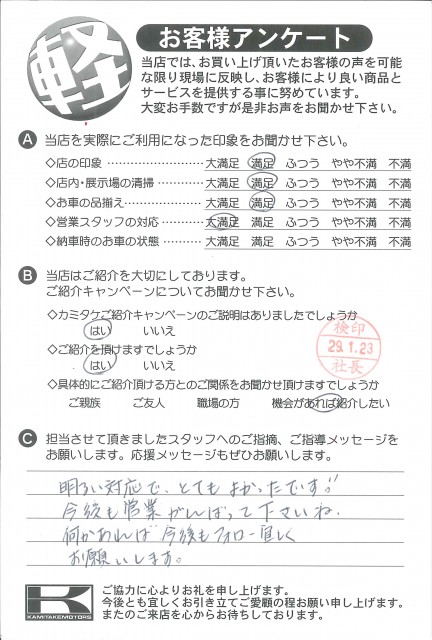 軽
お客様アンケート
当店では、お買い上げ頂いたお客様の声を可能
な限り現場に反映し、お客様により良い商品と
サービスを提供する事に努めています。
大変お手数ですが是非お声をお聞かせ下さい。
A 当店を実際にご利用になった印象をお聞かせ下さい。
◇店の印象 ………………… 大満足 満足 ふつう やや不満 不満
◇店内・展示場の清掃………… 大満足 満足 ふつう やや不満 不満
◇お車の品揃え……………… 大満足 満足 ふつう やや不満 不満
◇営業スタッフの対応 ………… 大満足 満足 ふつう やや不満 不満
◇納車時のお車の状態 ………… 大満足 満足 ふつう やや不満 不満
B 当店はご紹介を大切にしております。
ご紹介キャンペーンについてお聞かせ下さい。
◇カミタケご紹介キャンペーンのご説明はありましたでしょうか
はい いいえ
◇ご紹介を頂けますでしょうか
はい いいえ
検印
29.1.23
社長
◇具体的にご紹介頂ける方とのご関係をお聞かせ頂けますでしょうか
ご親族 ご友人 職場の方 機会があれば紹介したい
C 担当させて頂きましたスタッフへのご指摘、ご指導メッセージを
お願いします。応援メッセージもぜひお願いします。
明るい対応で、とてもよかったです!!
今後も営業がんばって下さいね.
何かあれば今後もフォロー宜しく
お願いします。
K
KAMITAKEMOTORS
ご協力に心よりお礼を申し上げます。
今後とも宜しくお引き立てご愛顧の程お願い申し上げます。
またのご来店を心からお待ちしております。